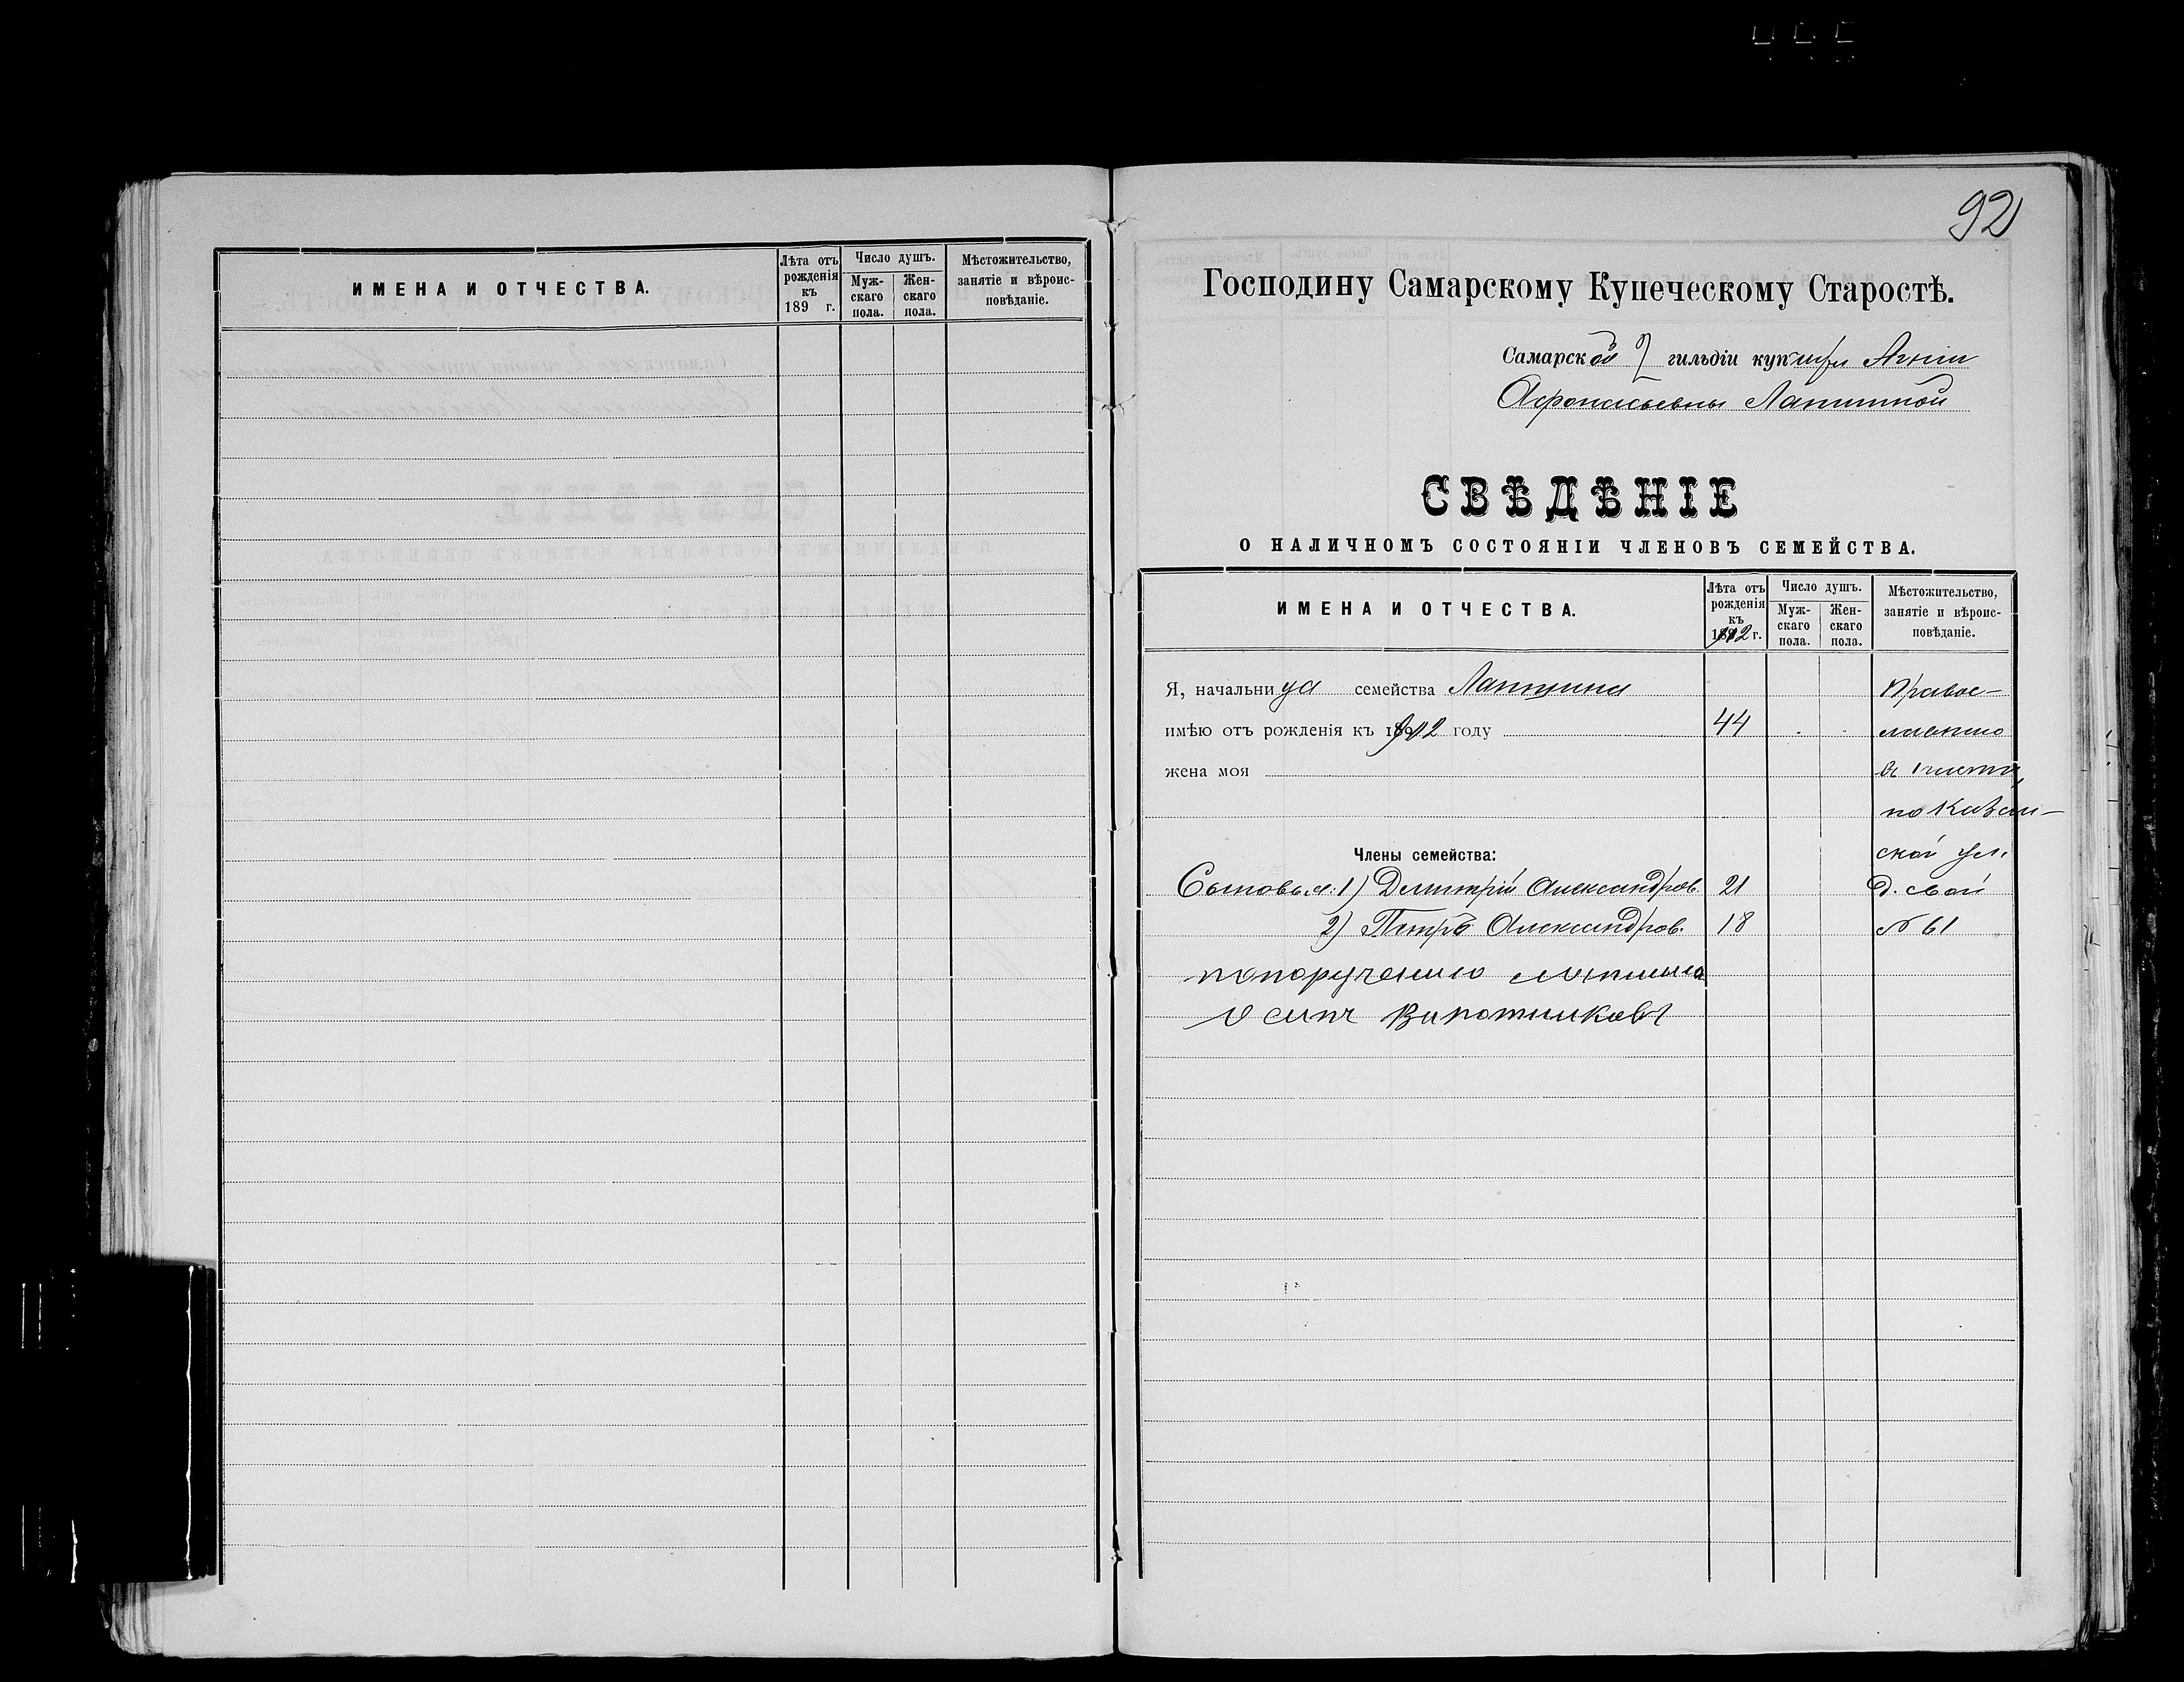 ИМЕНА И ОТЧЕСТВА.
Лѣта отъ рожденія къ 189 г.
Число душъ.
Мужскаго пола.
Женскаго пола.
Мѣстожительство, занятіе и вѣроисповѣданіе.
92
Господину Самарскому Купеческому Старостѣ.
Самарской 2 гильдіи куп Агніи
Афонасьевны Лапшиной
СВѢДѢНІЕ
О НАЛИЧНОМЪ СОСТОЯНІИ ЧЛЕНОВЪ СЕМЕЙСТВА.
ИМЕНА И ОТЧЕСТВА.
Лѣта отъ рожденія къ 1902 г.
Число душъ.
Мужскаго пола.
Женскаго пола.
Мѣстожительство, занятіе и вѣроисповѣданіе.
Я, начальница семейства Лапшина Правос-
имѣю отъ рожденія къ 1902 году 44 лавнаго
жена моя
по Казан-
Члены семейства: ской ул.
Сыновья: 1) Дмитрій Александров. 21 д. свой
2) Петръ Александров. 18 № 61
попорученію Лапшина